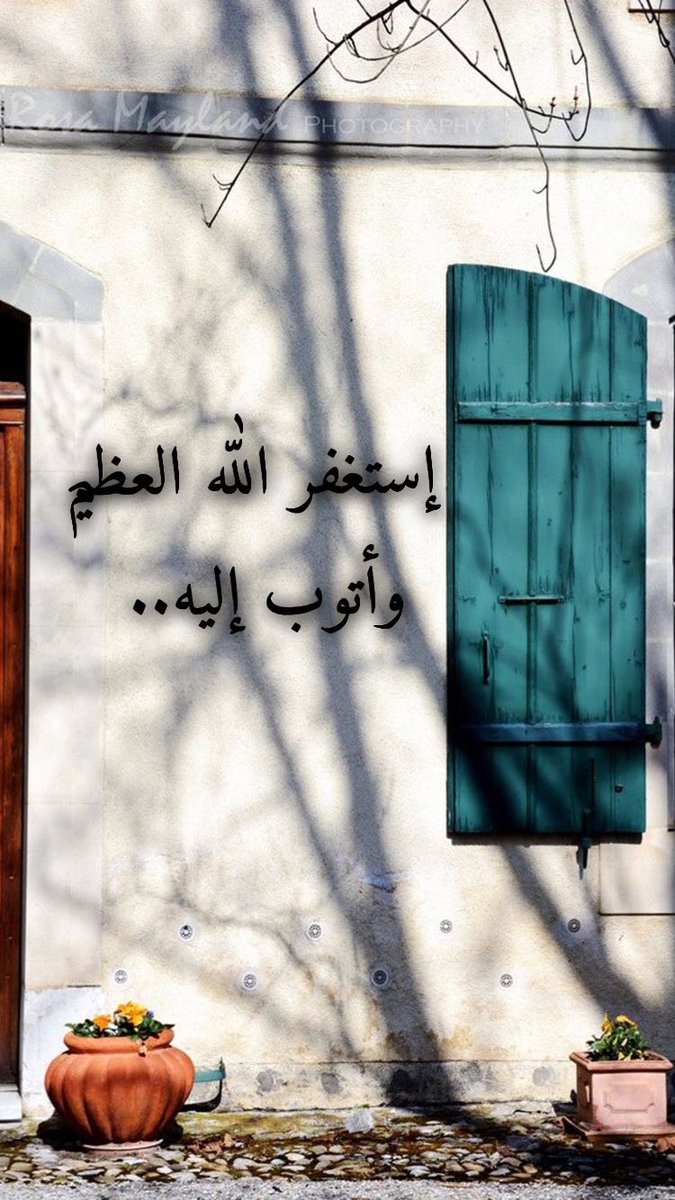 Rosa Mayland PHOTOGRAPHY
إستغفر الله العظيم
وأتوب إليه..